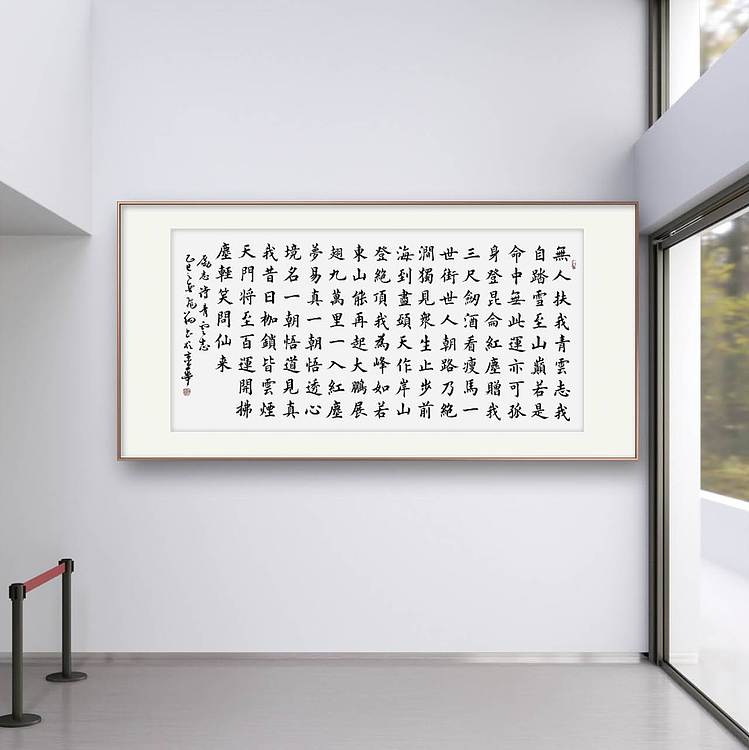 無人扶我青雲志我
自踏雪至山巔若是
命中無此運亦可孤
身登昆侖紅塵贈我
三尺劒酒看瘦馬一
世街世人朝路乃絕
澗獨見衆生止步前
海到盡頭天作岸山
登絕頂我為峰如若
東山能再起大鵬展
翅九萬里一入紅塵
夢易真一朝悟透心
境名一朝悟道見真
我昔日枷鎖皆雲煙
天門將至百運開拂
塵輕笑問仙来
勵志诗青雲志
乙巳年